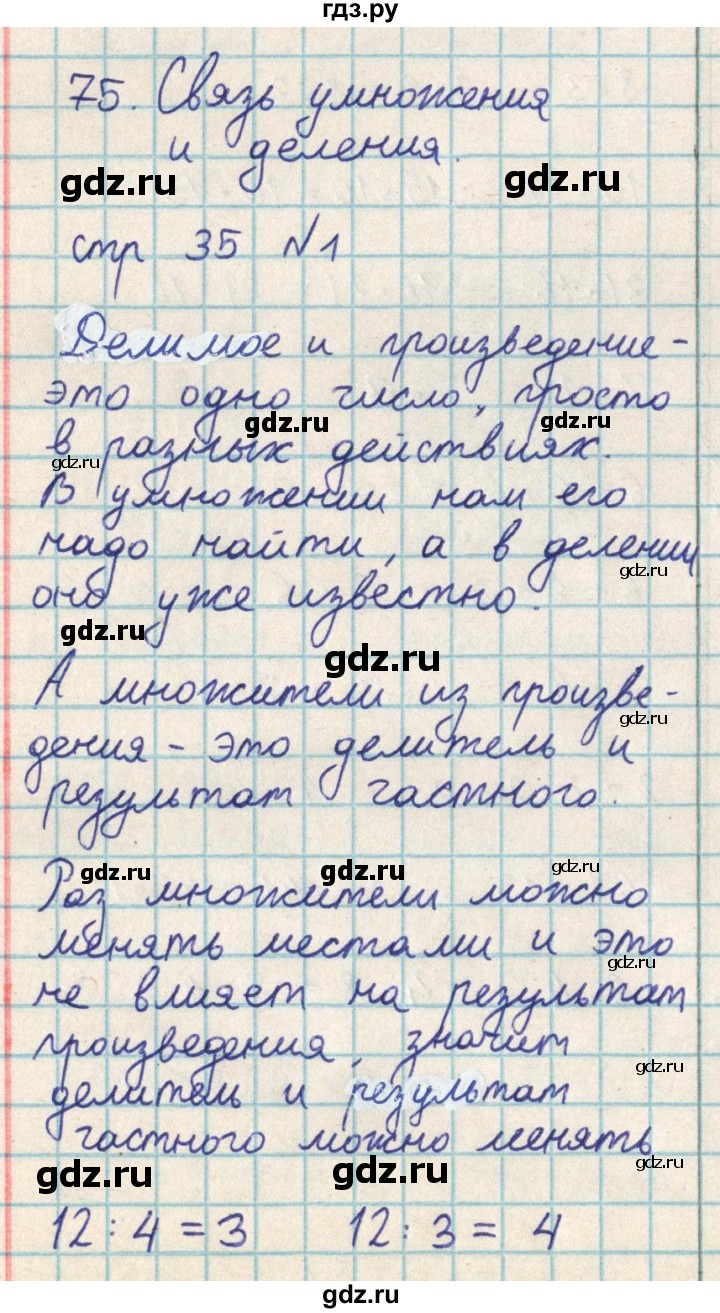 гдз.ру
75. Связь умножения
и деления.
gdz.ru gdz.ru
стр 35 №1
Делимое и произведение -
это одно число, просто
gdz.ru gdz.ru
в разных действиях.
gdz.ru
В умножении нам его
надо найти, а в делении
gdz.ru
оно уже известно.
gdz.ru
gdz.ru
А множители из произве-
gdz.ru
дения - это делитель и
результат частного.
gdz.ru gdz.ru gdz.ru
Раз множители можно
менять местами и это
gdz.ru
не влияет на результат
произведения, значит
gdz.ru
делитель и результат
частного можно менять
gdz.ru gdz.ru gdz.ru
12 : 4 = 3 12 : 3 = 4
gdz.ru